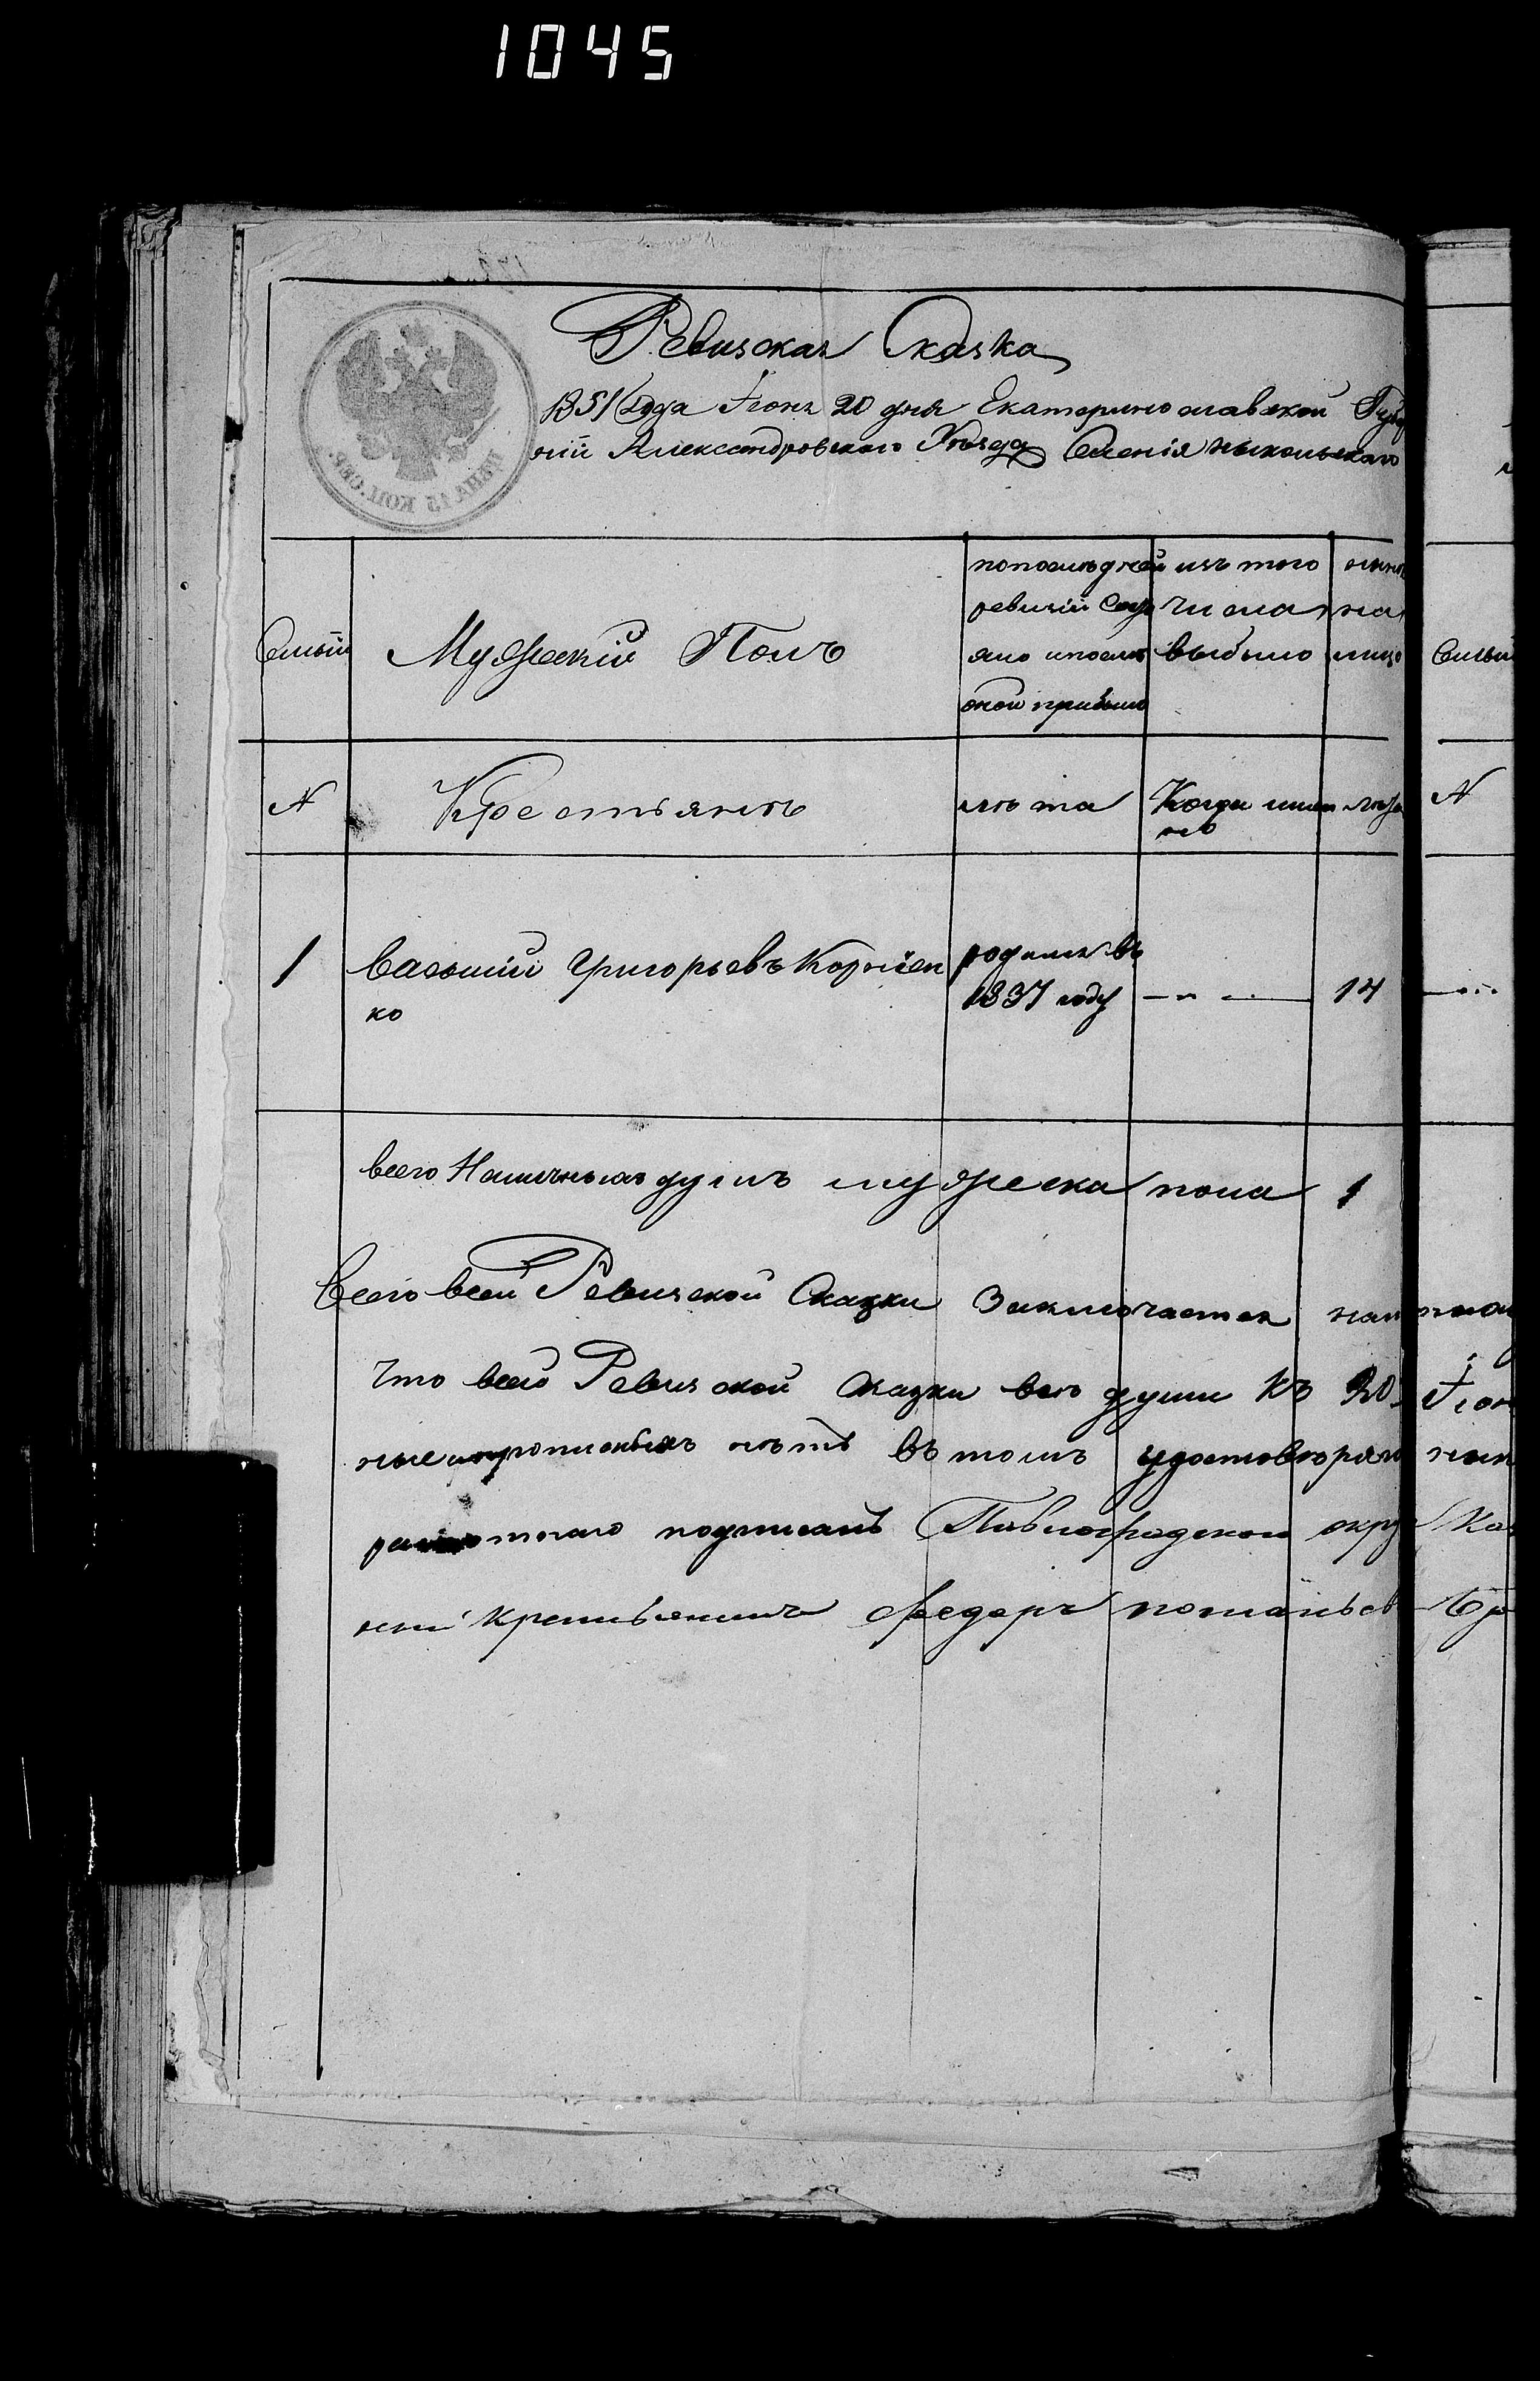 1045
Ревизская Сказка
1851 Года Июня 20 дня Екатеринославской Губер
нии Александровского Уезда Селения
ЦЕНА 15 КОП. СЕР.
Семьи
Мужеский Полъ
по последней
ревизии состо
яло и после
оной прибыло
изъ того
числа
выбыло
ныне
на
лицо
Семьи
N
Крестьянъ
лѣта
Когда имен
но
лѣта
N
1
Василий Григорьевъ Корніен
ко
родился въ
1837 году
14
всего Наличныхъ душъ мужеска пола 1
Всего всей Ревизской Сказки Заключается
Что всей Ревизской Сказки всѣ души Къ 20 Июн
нѣтъ въ томъ удостовѣряю
подписалъ Павлоградской окру
крестьянинъ Федеръ